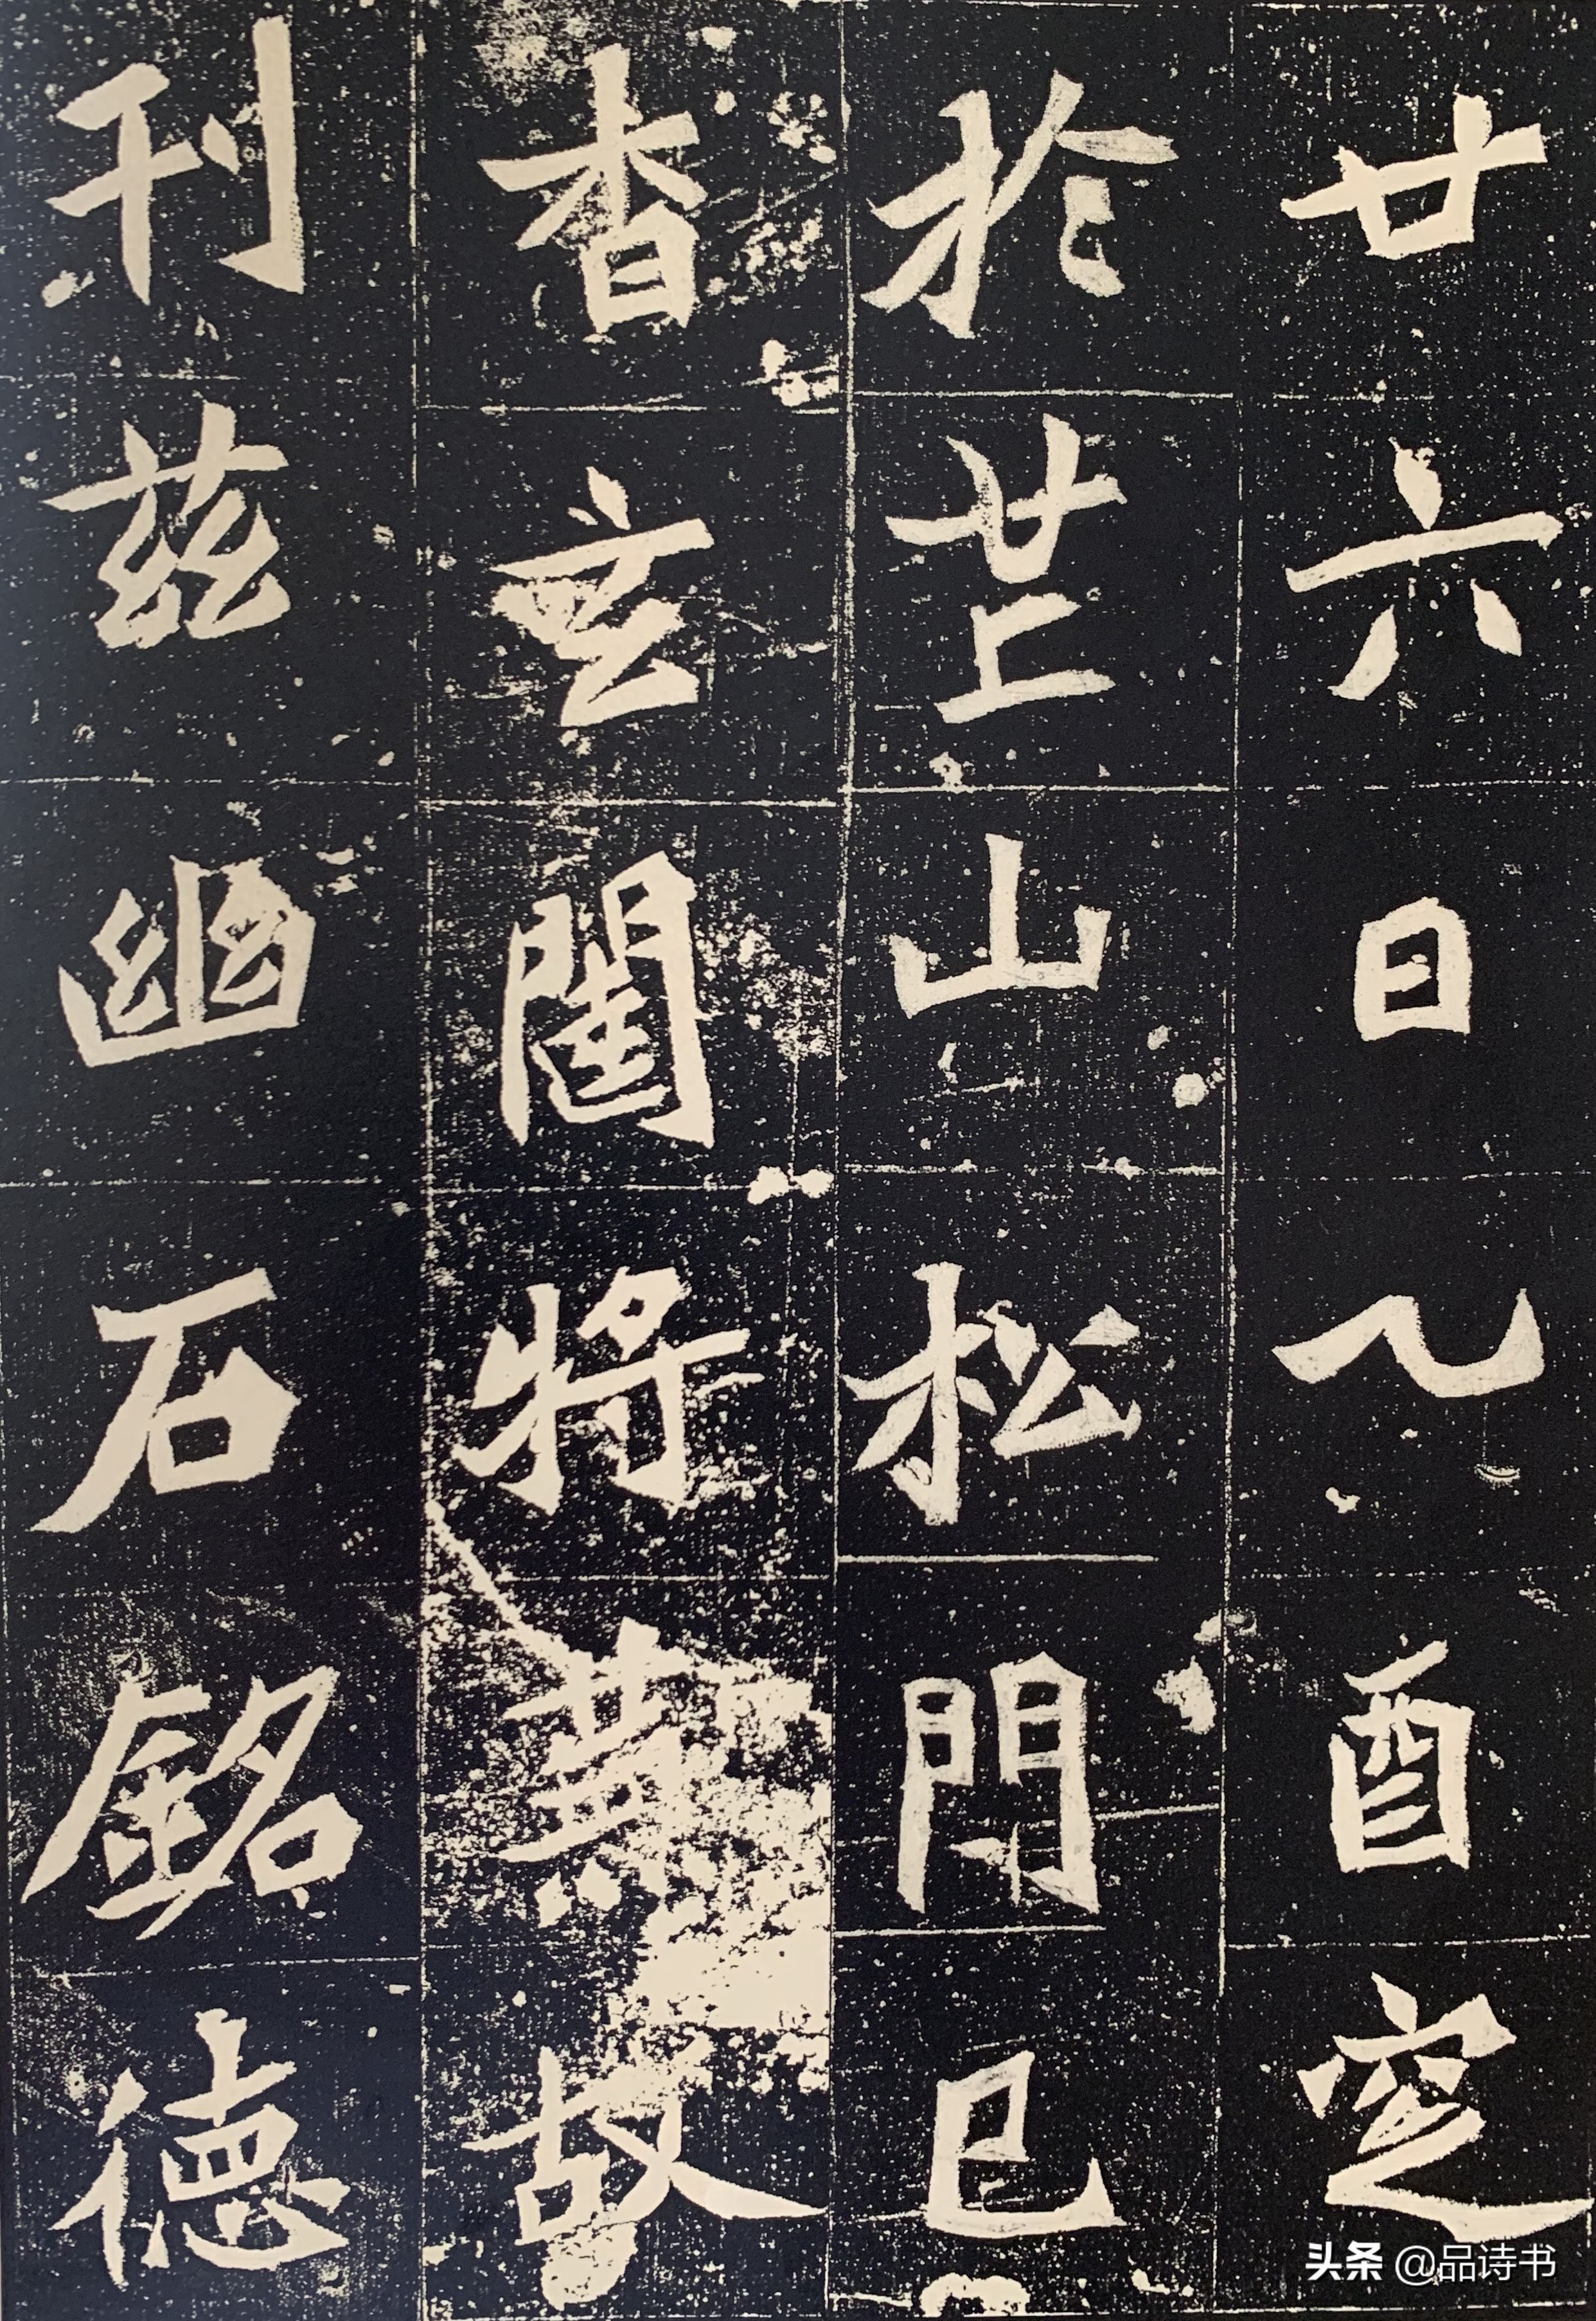 廿六日乙酉窆
於芒山松門已
杳玄閨將蕪故
刊茲幽石銘德
头条 @品诗书